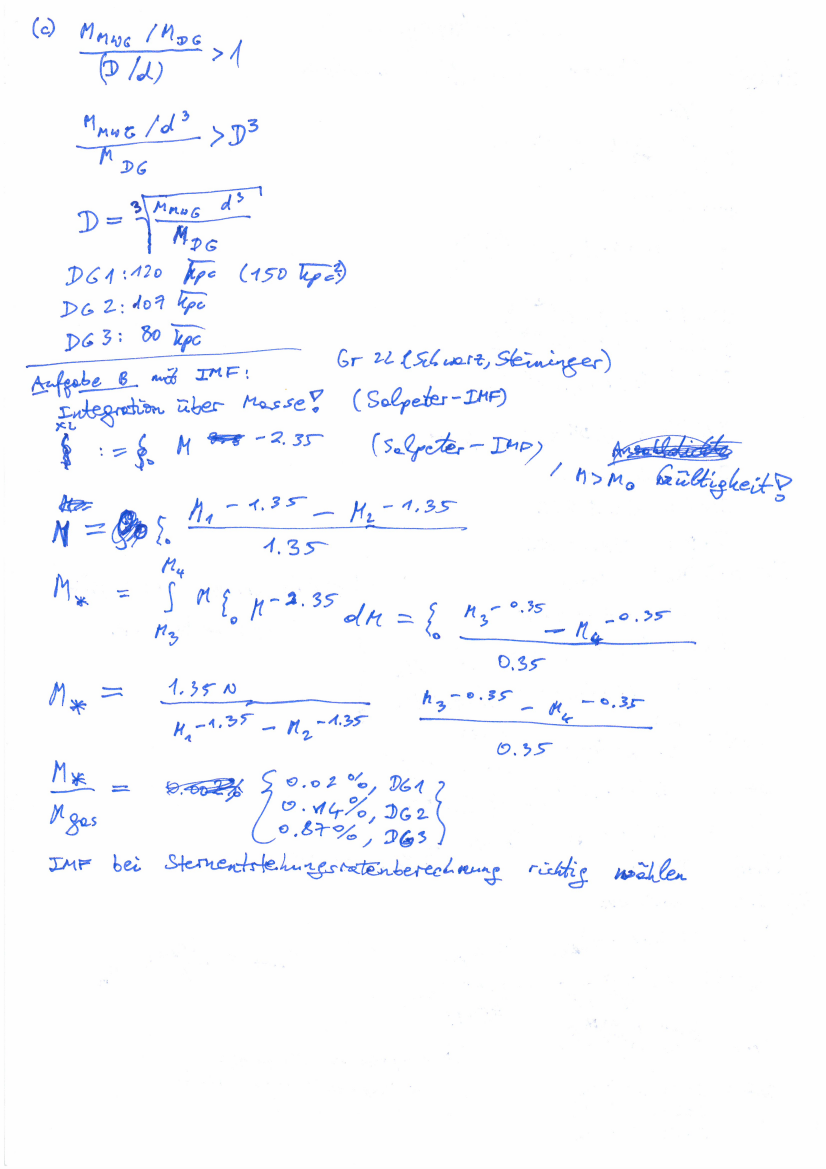 (c) M_MWG / M_DG / (D/d) > 1
M_MWG / d³ / M_DG > D³
D = ³√(M_MWG d³ / M_DG)
DG1: 120 kpc (150 kpc?)
DG2: 107 kpc
DG3: 80 kpc
Gr 22 (Schwarz, Steininger)
Aufgabe 8 mit IMF:
Integration über Masse! (Salpeter-IMF)
ξ := ξ₀ M^-2.35 (Salpeter-IMF), M>M₀ Gültigkeit!
N = ξ₀ (M₁^-1.35 − M₂^-1.35) / 1.35
M_* = ∫_M₃^M₄ M ξ₀ M^-2.35 dM = ξ₀ (M₃^-0.35 − M₄^-0.35) / 0.35
M_* = 1.35 N / (M₁^-1.35 − M₂^-1.35) (M₃^-0.35 − M₄^-0.35) / 0.35
M_* / M_gas = { 0.02 %, DG1
0.14%, DG2
0.87%, DG3 }
IMF bei Sternentstehungsratenberechnung richtig wählen